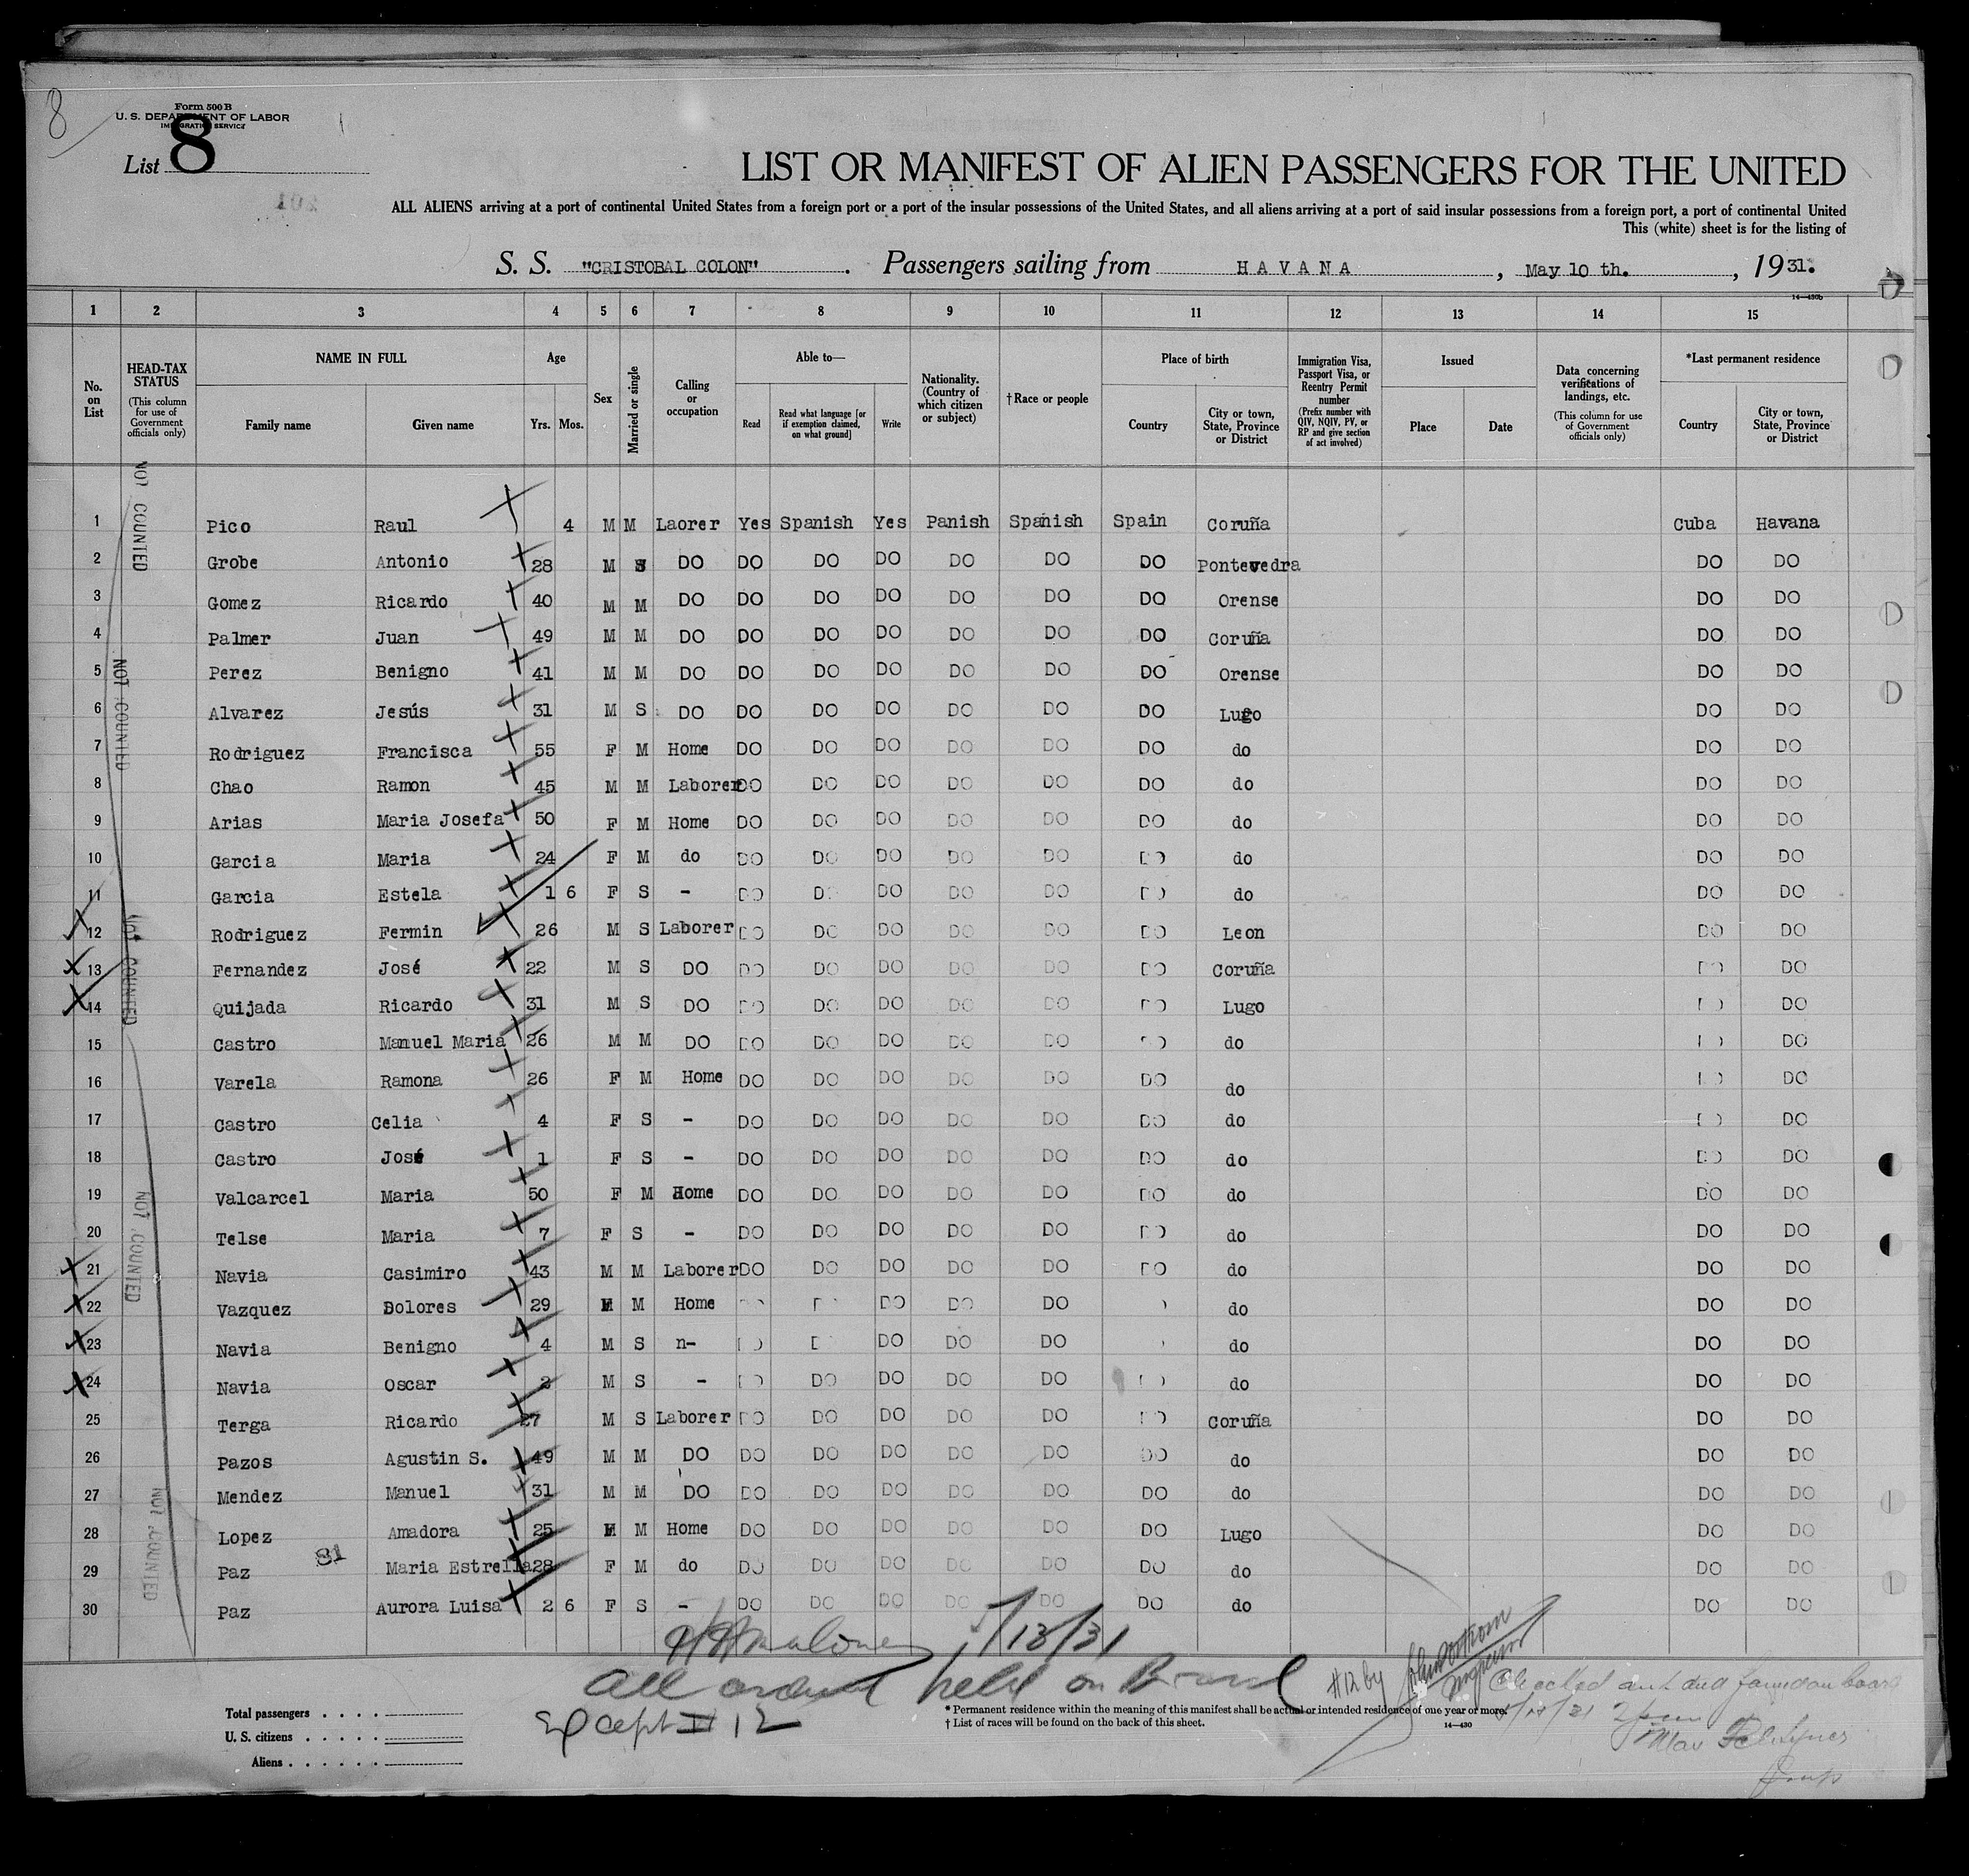 8
Form 500 B
U. S. DEPARTMENT OF LABOR
IMMIGRATION SERVICE
List 8
LIST OR MANIFEST OF ALIEN PASSENGERS FOR THE UNITED
ALL ALIENS arriving at a port of continental United States from a foreign port or a port of the insular possessions of the United States, and all aliens arriving at a port of said insular possessions from a foreign port, a port of continental United
This (white) sheet is for the listing of
S. S. "CRISTOBAL COLON". Passengers sailing from HAVANA, May 10 th., 1931.
14—430b
1 2 3 4 5 6 7 8 9 10 11 12 13 14 15
No. on List
HEAD-TAX STATUS (This column for use of Government officials only)
NAME IN FULL Family name Given name
Age Yrs. Mos.
Sex
Married or single
Calling or occupation
Able to— Read Read what language [or if exemption claimed, on what ground] Write
Nationality. (Country of which citizen or subject)
†Race or people
Place of birth Country City or town, State, Province or District
Immigration Visa, Passport Visa, or Reentry Permit number (Prefix number with QIV, NQIV, PV, or RP and give section of act involved)
Issued Place Date
Data concerning verifications of landings, etc. (This column for use of Government officials only)
*Last permanent residence Country City or town, State, Province or District
1 Pico Raul 4 M M Laorer Yes Spanish Yes Panish Spanish Spain Coruña Cuba Havana
2 Grobe Antonio 28 M S DO DO DO DO DO DO DO Pontevedra DO DO
3 Gomez Ricardo 40 M M DO DO DO DO DO DO DO Orense DO DO
4 Palmer Juan 49 M M DO DO DO DO DO DO DO Coruña DO DO
5 Perez Benigno 41 M M DO DO DO DO DO DO DO Orense DO DO
6 Alvarez Jesús 31 M S DO DO DO DO DO DO DO Lugo DO DO
7 Rodriguez Francisca 55 F M Home DO DO DO DO DO DO do DO DO
8 Chao Ramon 45 M M Laborer DO DO DO DO DO DO do DO DO
9 Arias Maria Josefa 50 F M Home DO DO DO DO DO DO do DO DO
10 Garcia Maria 24 F M do DO DO DO DO DO DO do DO DO
11 Garcia Estela 1 6 F S - DO DO DO DO DO DO do DO DO
12 Rodriguez Fermin 26 M S Laborer DO DO DO DO DO DO Leon DO DO
13 Fernandez José 22 M S DO DO DO DO DO DO DO Coruña DO DO
14 Quijada Ricardo 31 M S DO DO DO DO DO DO DO Lugo DO DO
15 Castro Manuel Maria 26 M M DO DO DO DO DO DO DO do DO DO
16 Varela Ramona 26 F M Home DO DO DO DO DO DO do DO DO
17 Castro Celia 4 F S - DO DO DO DO DO DO do DO DO
18 Castro José 1 F S - DO DO DO DO DO DO do DO DO
19 Valcarcel Maria 50 F M Home DO DO DO DO DO DO do DO DO
20 Telse Maria 7 F S - DO DO DO DO DO DO do DO DO
21 Navia Casimiro 43 M M Laborer DO DO DO DO DO DO do DO DO
22 Vazquez Dolores 29 M Home DO DO DO DO do DO DO
23 Navia Benigno 4 M S n- DO DO DO do DO DO
24 Navia Oscar 2 M S - DO DO DO DO DO DO do DO DO
25 Terga Ricardo 27 M S Laborer DO DO DO DO DO DO Coruña DO DO
26 Pazos Agustin S. 49 M M DO DO DO DO DO DO DO do DO DO
27 Mendez Manuel 31 M M DO DO DO DO DO DO DO do DO DO
28 Lopez Amadora 25 M Home DO DO DO DO DO DO Lugo DO DO
29 Paz 31 Maria Estrella 28 F M do DO DO DO DO DO DO do DO DO
30 Paz Aurora Luisa 2 6 F S - DO DO DO DO DO DO do DO DO
NOT COUNTED
NOT COUNTED
NOT COUNTED
NOT COUNTED
NOT COUNTED
5/13/31
All held on Board
Except # 12
#12 by
Checked and found on board
Total passengers
U. S. citizens
Aliens
* Permanent residence within the meaning of this manifest shall be actual or intended residence of one year or more.
† List of races will be found on the back of this sheet.
14—430